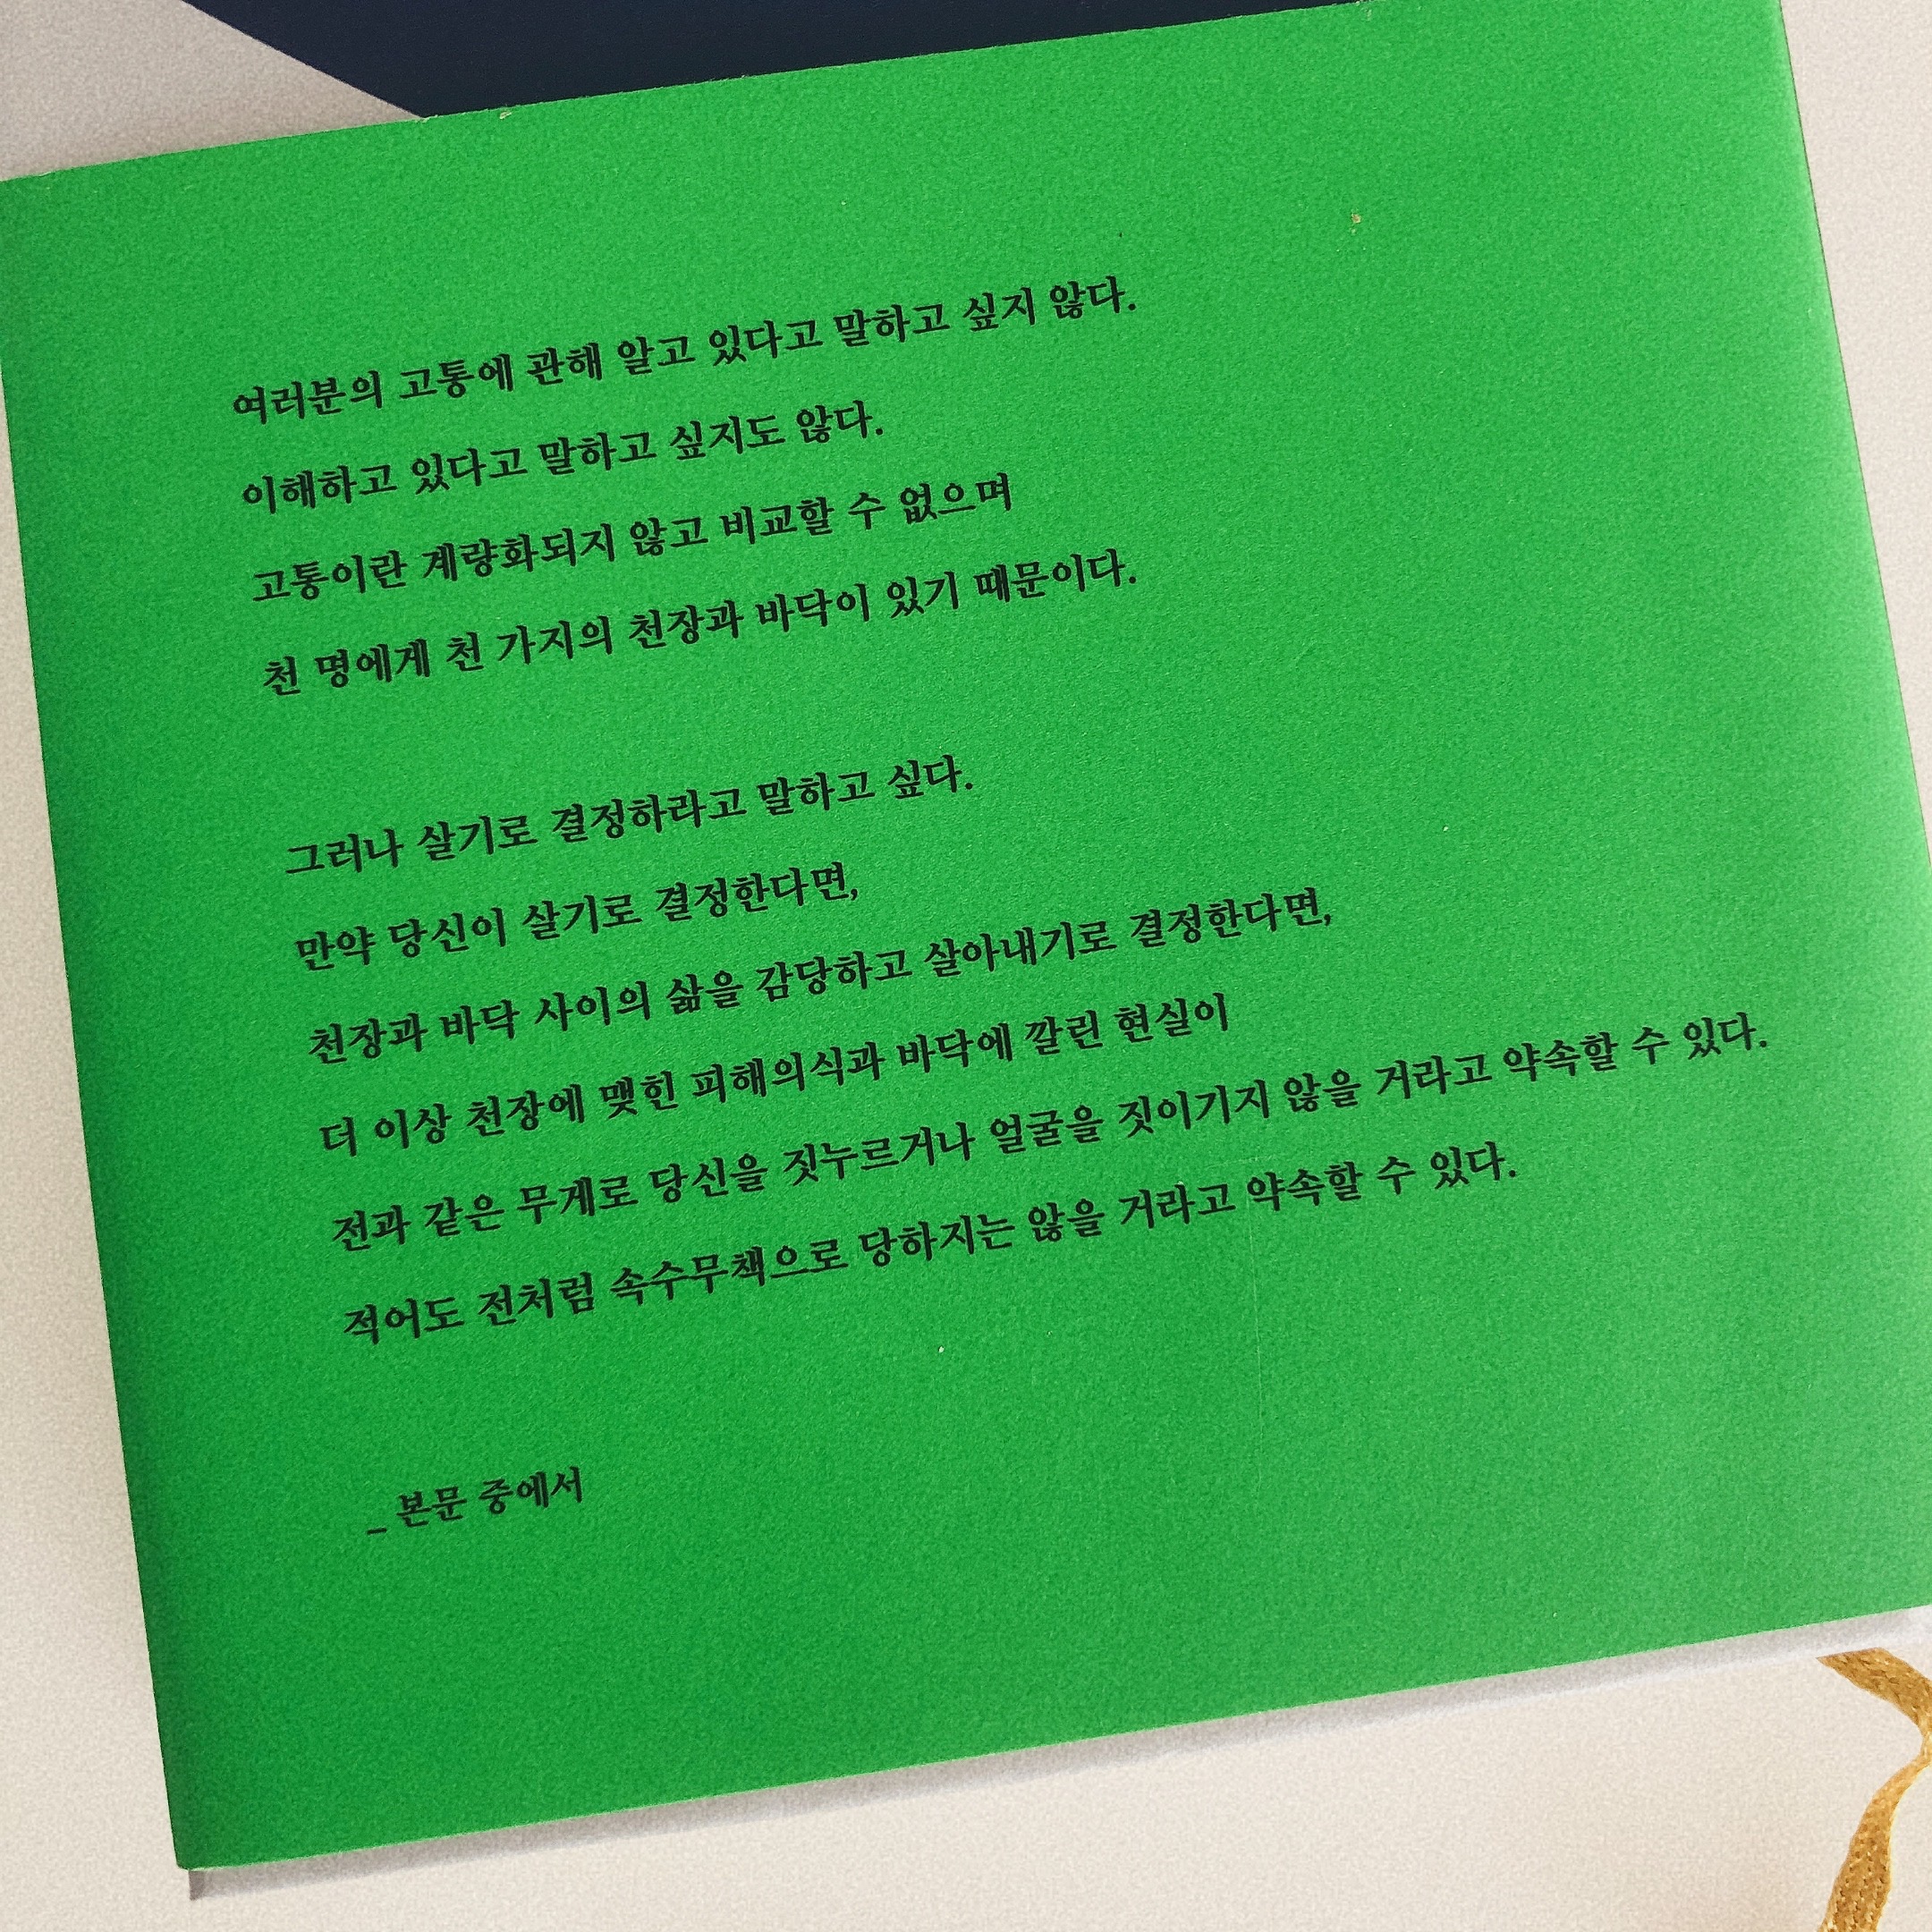 여러분의 고통에 관해 알고 있다고 말하고 싶지 않다.
이해하고 있다고 말하고 싶지도 않다.
고통이란 계량화되지 않고 비교할 수 없으며
천 명에게 천 가지의 천장과 바닥이 있기 때문이다.
그러나 살기로 결정하라고 말하고 싶다.
만약 당신이 살기로 결정한다면,
천장과 바닥 사이의 삶을 감당하고 살아내기로 결정한다면,
더 이상 천장에 맺힌 피해의식과 바닥에 깔린 현실이
전과 같은 무게로 당신을 짓누르거나 얼굴을 짓이기지 않을 거라고 약속할 수 있다.
적어도 전처럼 속수무책으로 당하지는 않을 거라고 약속할 수 있다.
_ 본문 중에서